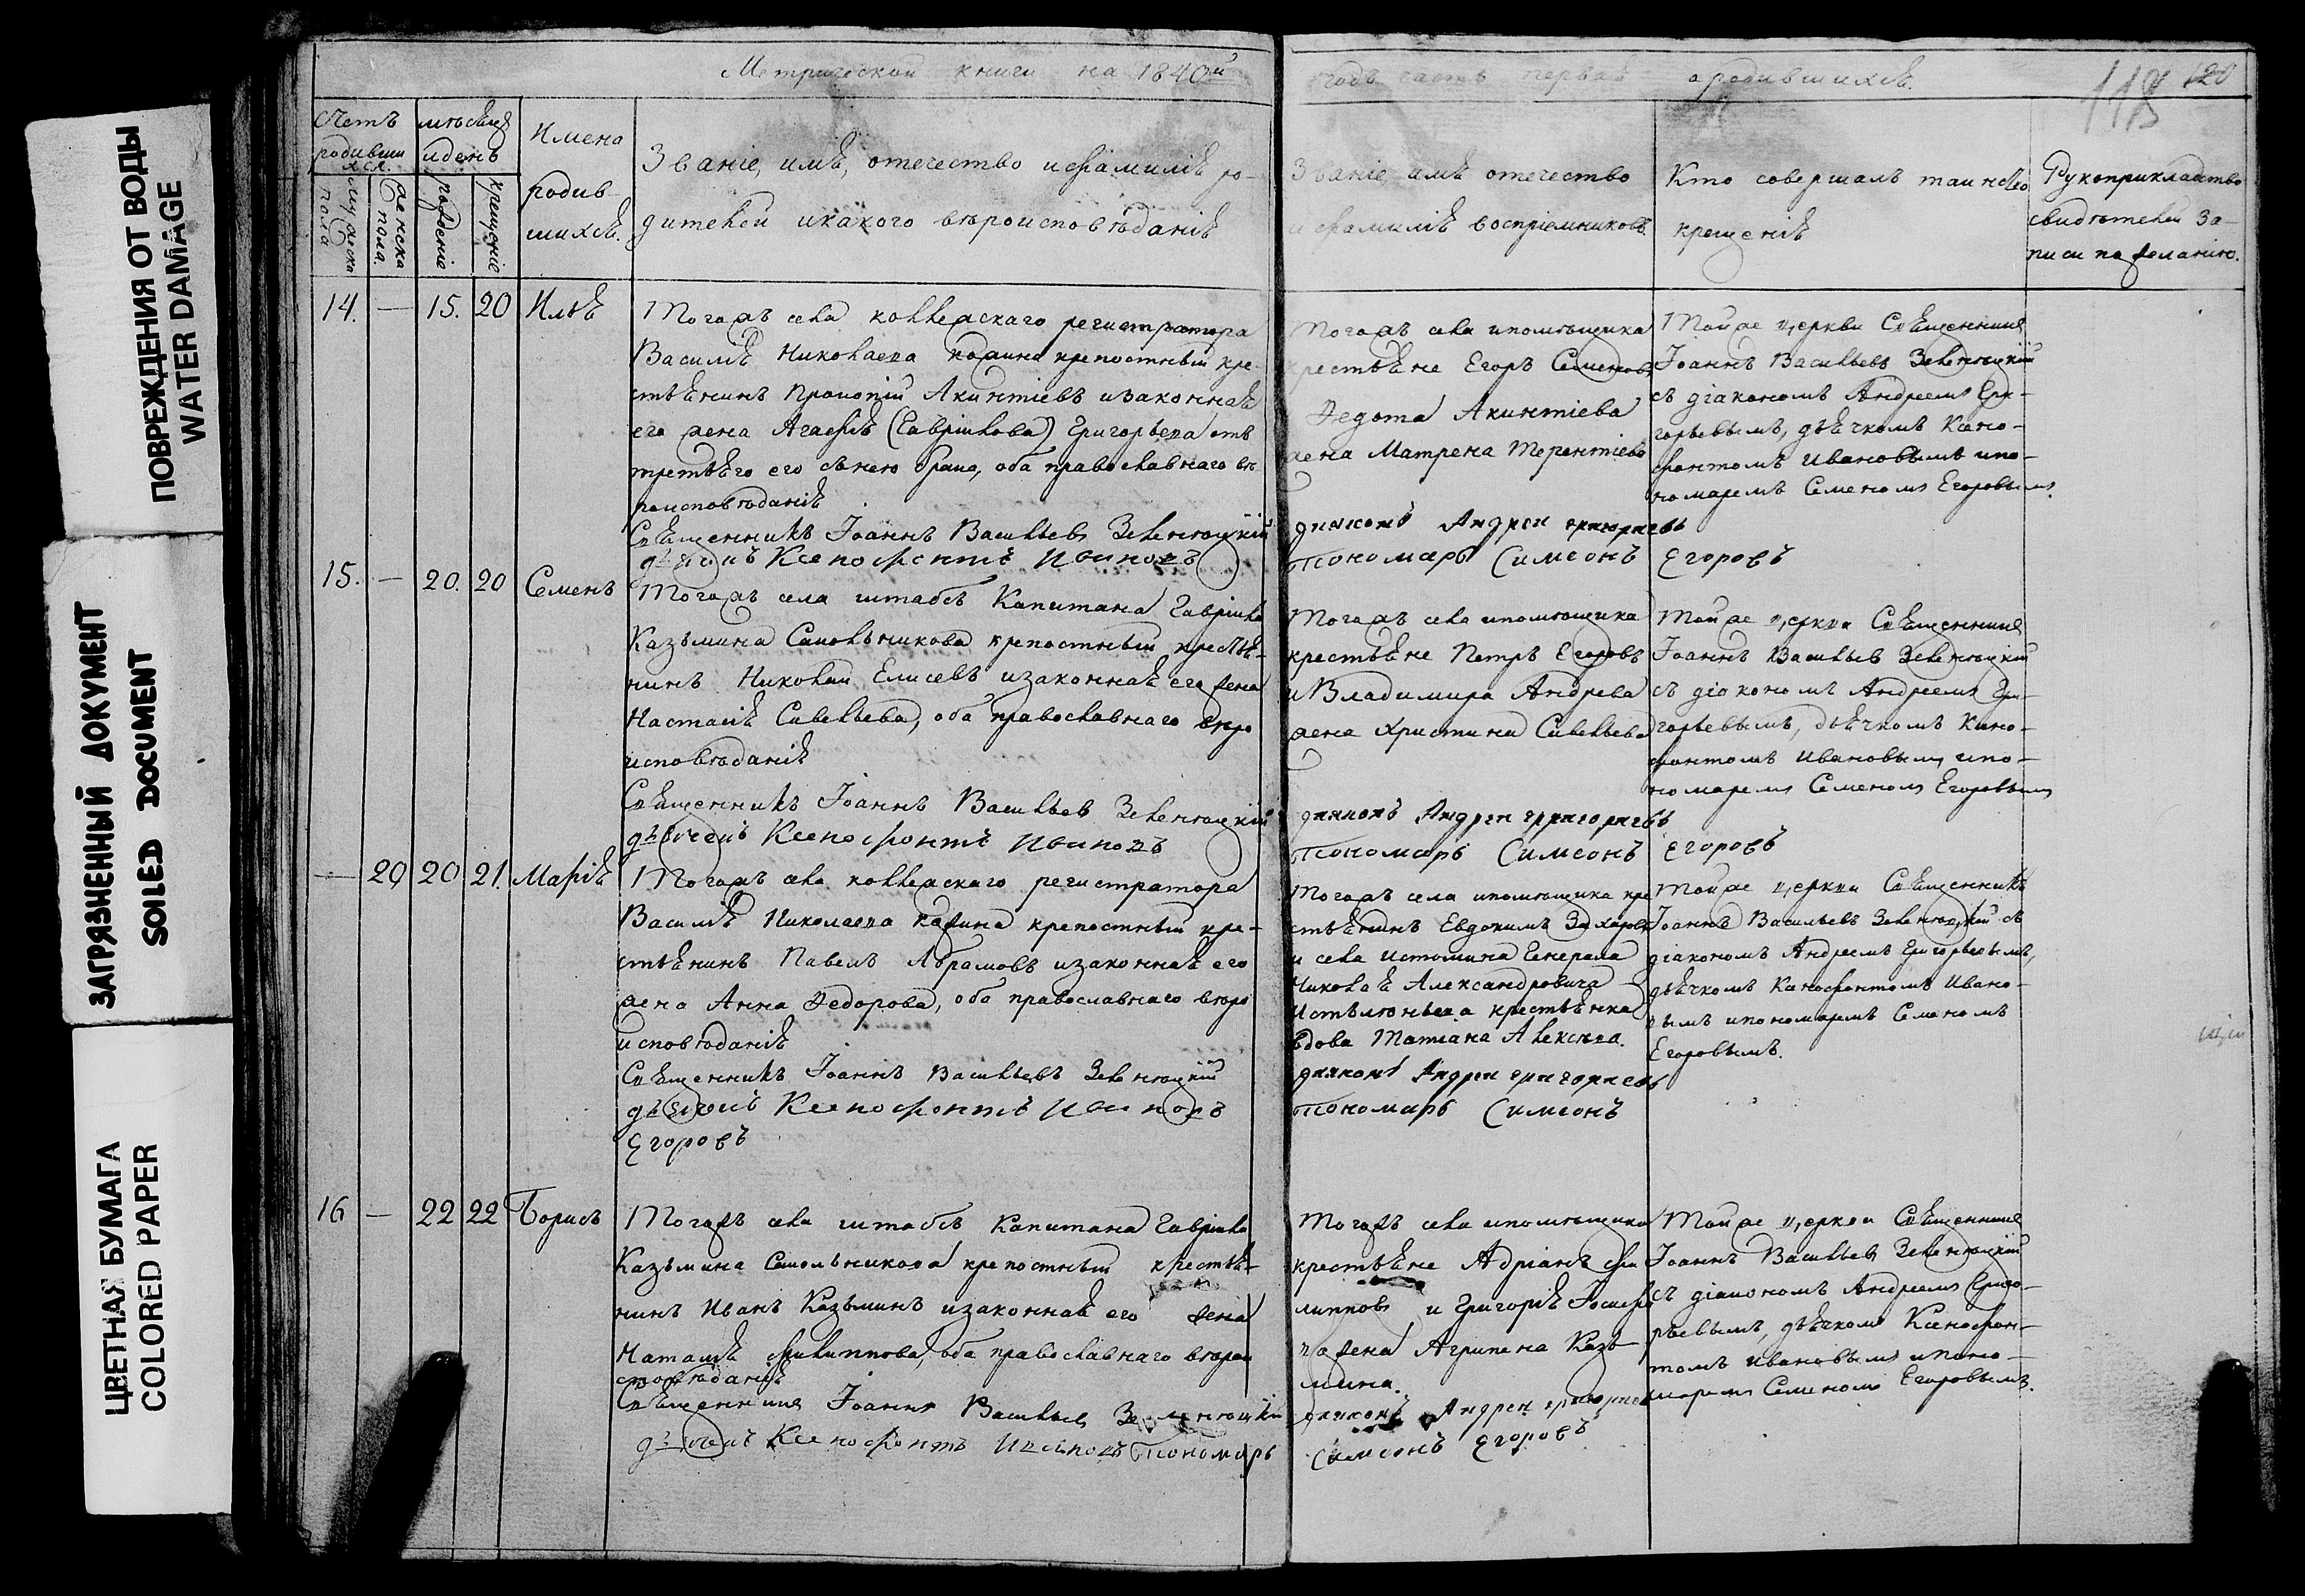 ПОВРЕЖДЕНИЯ ОТ ВОДЫ
WATER DAMAGE
ЗАГРЯЗНЕННЫЙ ДОКУМЕНТ
SOILED DOCUMENT
ЦВЕТНАЯ БУМАГА
COLORED PAPER
Метрической книги на 1840й
годъ часть первая о родившихся.
118 120
Счетъ
родивши
хся.
мужеска
пола
женска
пола.
мѣсяцъ
и день
рожденіе
крещеніе
Имена
родив-
шихся.
Званіе, имя, отечество и фамилія ро-
дителей и какого вѣроисповѣданія
Званіе имя отечество
и фамилія воспріемниковъ.
Кто совершалъ таинство
крещенія
Рукоприкладство
свидѣтелей за-
писи по желанію.
14. — 15. 20 Илья
Тогожъ села коллежскаго регистратора
Василія Николаева крепостный кре-
стьянинъ Прокопій Акинтіевъ и законная
его жена Агафія (Гаврилова) Григорьева отъ
третьяго его с нею брака, оба православнаго вѣ-
роисповѣданія
Священникъ Іоаннъ Васильевъ Зеленецкій
дьячокъ Ксенофонтъ Ивановъ
Тогожъ села и помѣщика
крестьяне Егоръ Семеновъ
Федота Акинтіева
жена Матрена Терентіева
диаконъ Андрей григориевъ
Пономарь Симеонъ Егоровъ
Тойже церкви Священникъ
Іоаннъ Васильевъ Зеленецкій
съ діакономъ Андреемъ Гри-
горьевымъ, дьячкомъ Ксено-
фонтомъ Ивановымъ и по-
номаремъ Семеномъ Егоровымъ.
15. — 20. 20 Семенъ
Тогожъ села штабсъ Капитана Гаврила
Казьмина Сипольникова крепостный крестья-
нинъ Николай Елисевъ и законная его жена
Настасія Савельева, оба православнаго вѣро
исповѣданія
Священникъ Іоаннъ Васильевъ Зеленецкій
дьячокъ Ксенофонтъ Ивановъ
Тогожъ села и помѣщика
крестьяне Петръ Егоровъ
и Владимира Андрева
жена Христина Савельева
диаконъ Андрей григориевъ
Пономарь Симеонъ Егоровъ
Тойже церкви Священникъ
Іоаннъ Васильевъ Зеленецкій
съ діакономъ Андреемъ Гри-
горьевымъ, дьячкомъ Ксено-
фонтомъ Ивановымъ и по-
номаремъ Семеномъ Егоровымъ
— 29 20 21. Марія
Тогожъ села коллежскаго регистратора
Василія Николаева крепостный кре-
стьянинъ Павелъ Абрамовъ и законная его
жена Анна Федорова, оба православнаго вѣро
исповѣданія
Священникъ Іоаннъ Васильевъ Зеленецкій
дьячокъ Ксенофонтъ Ивановъ
Егоровъ
Тогожъ села и помѣщика кре
стьянинъ Евдокимъ Захаровъ
и села Истомина Генерала
Николая Александровича
крестьянка
вдова Татіана Алексѣева.
диаконъ Андрей григориевъ
Пономарь Симеонъ
Тойже церкви Священникъ
Іоаннъ Васильевъ Зеленецкій съ
діакономъ Андреемъ Григорьевымъ,
дьячкомъ Ксенофонтомъ Ивано-
вымъ и пономаремъ Семеномъ
Егоровымъ.
16 — 22 22 Борисъ
Тогожъ села штабсъ Капитана Гаврила
Казьмина крепостный крестья-
нинъ Иванъ Казьминъ и законная его жена
Наталія Филиппова, оба православнаго вѣрои
споведанія
Священникъ Іоаннъ Васильевъ Зеленецкій
дьячокъ Ксенофонтъ Ивановъ Пономарь
Тогожъ села и помѣщика
крестьяне Адріанъ Фи
липповъ и Григорія Іосифо
ва жена Агрипена Казь-
мина.
диаконъ Андрей григориевъ
Симеонъ Егоровъ
Тойже церкви Священникъ
Іоаннъ Васильевъ Зеленецкій
съ діакономъ Андреемъ Григо-
рьевымъ, дьячкомъ Ксенофон-
томъ Ивановымъ и поно-
маремъ Семеномъ Егоровымъ.